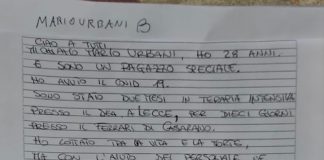 MARIO URBANI
CIAO A TUTTI
MI CHIAMO MARIO URBANI, HO 28 ANNI.
E SONO UN RAGAZZO SPECIALE.
HO AVUTO IL COVID 19.
SONO STATO DUE MESI IN TERAPIA INTENSIVA
PRESSO IL DEA A LECCE, PER DIECI GIORNI
PRESSO IL FERRARI DI CASARANO.
HO LOTTATO TRA LA VITA E LA MORTE,
MA CON L'AIUTO DEL PERSONALE